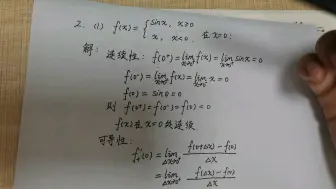 2. (1) f(x) = { sinx, x≥0
x, x<0. 在x=0;
解: 连续性: f(0⁺)=lim_{x→0⁺} f(x)=lim_{x→0⁺} sinx=0
f(0⁻)=lim_{x→0⁻} f(x)=lim_{x→0⁻} x=0
f(0)=sin0=0
则 f(0⁺)=f(0⁻)=f(0)=0
f(x)在x=0处连续
可导性:
f₊'(0)=lim_{Δx→0⁺} (f(0+Δx)-f(0))/Δx
=lim_{Δx→0⁺} (f(Δx)-f(0))/Δx